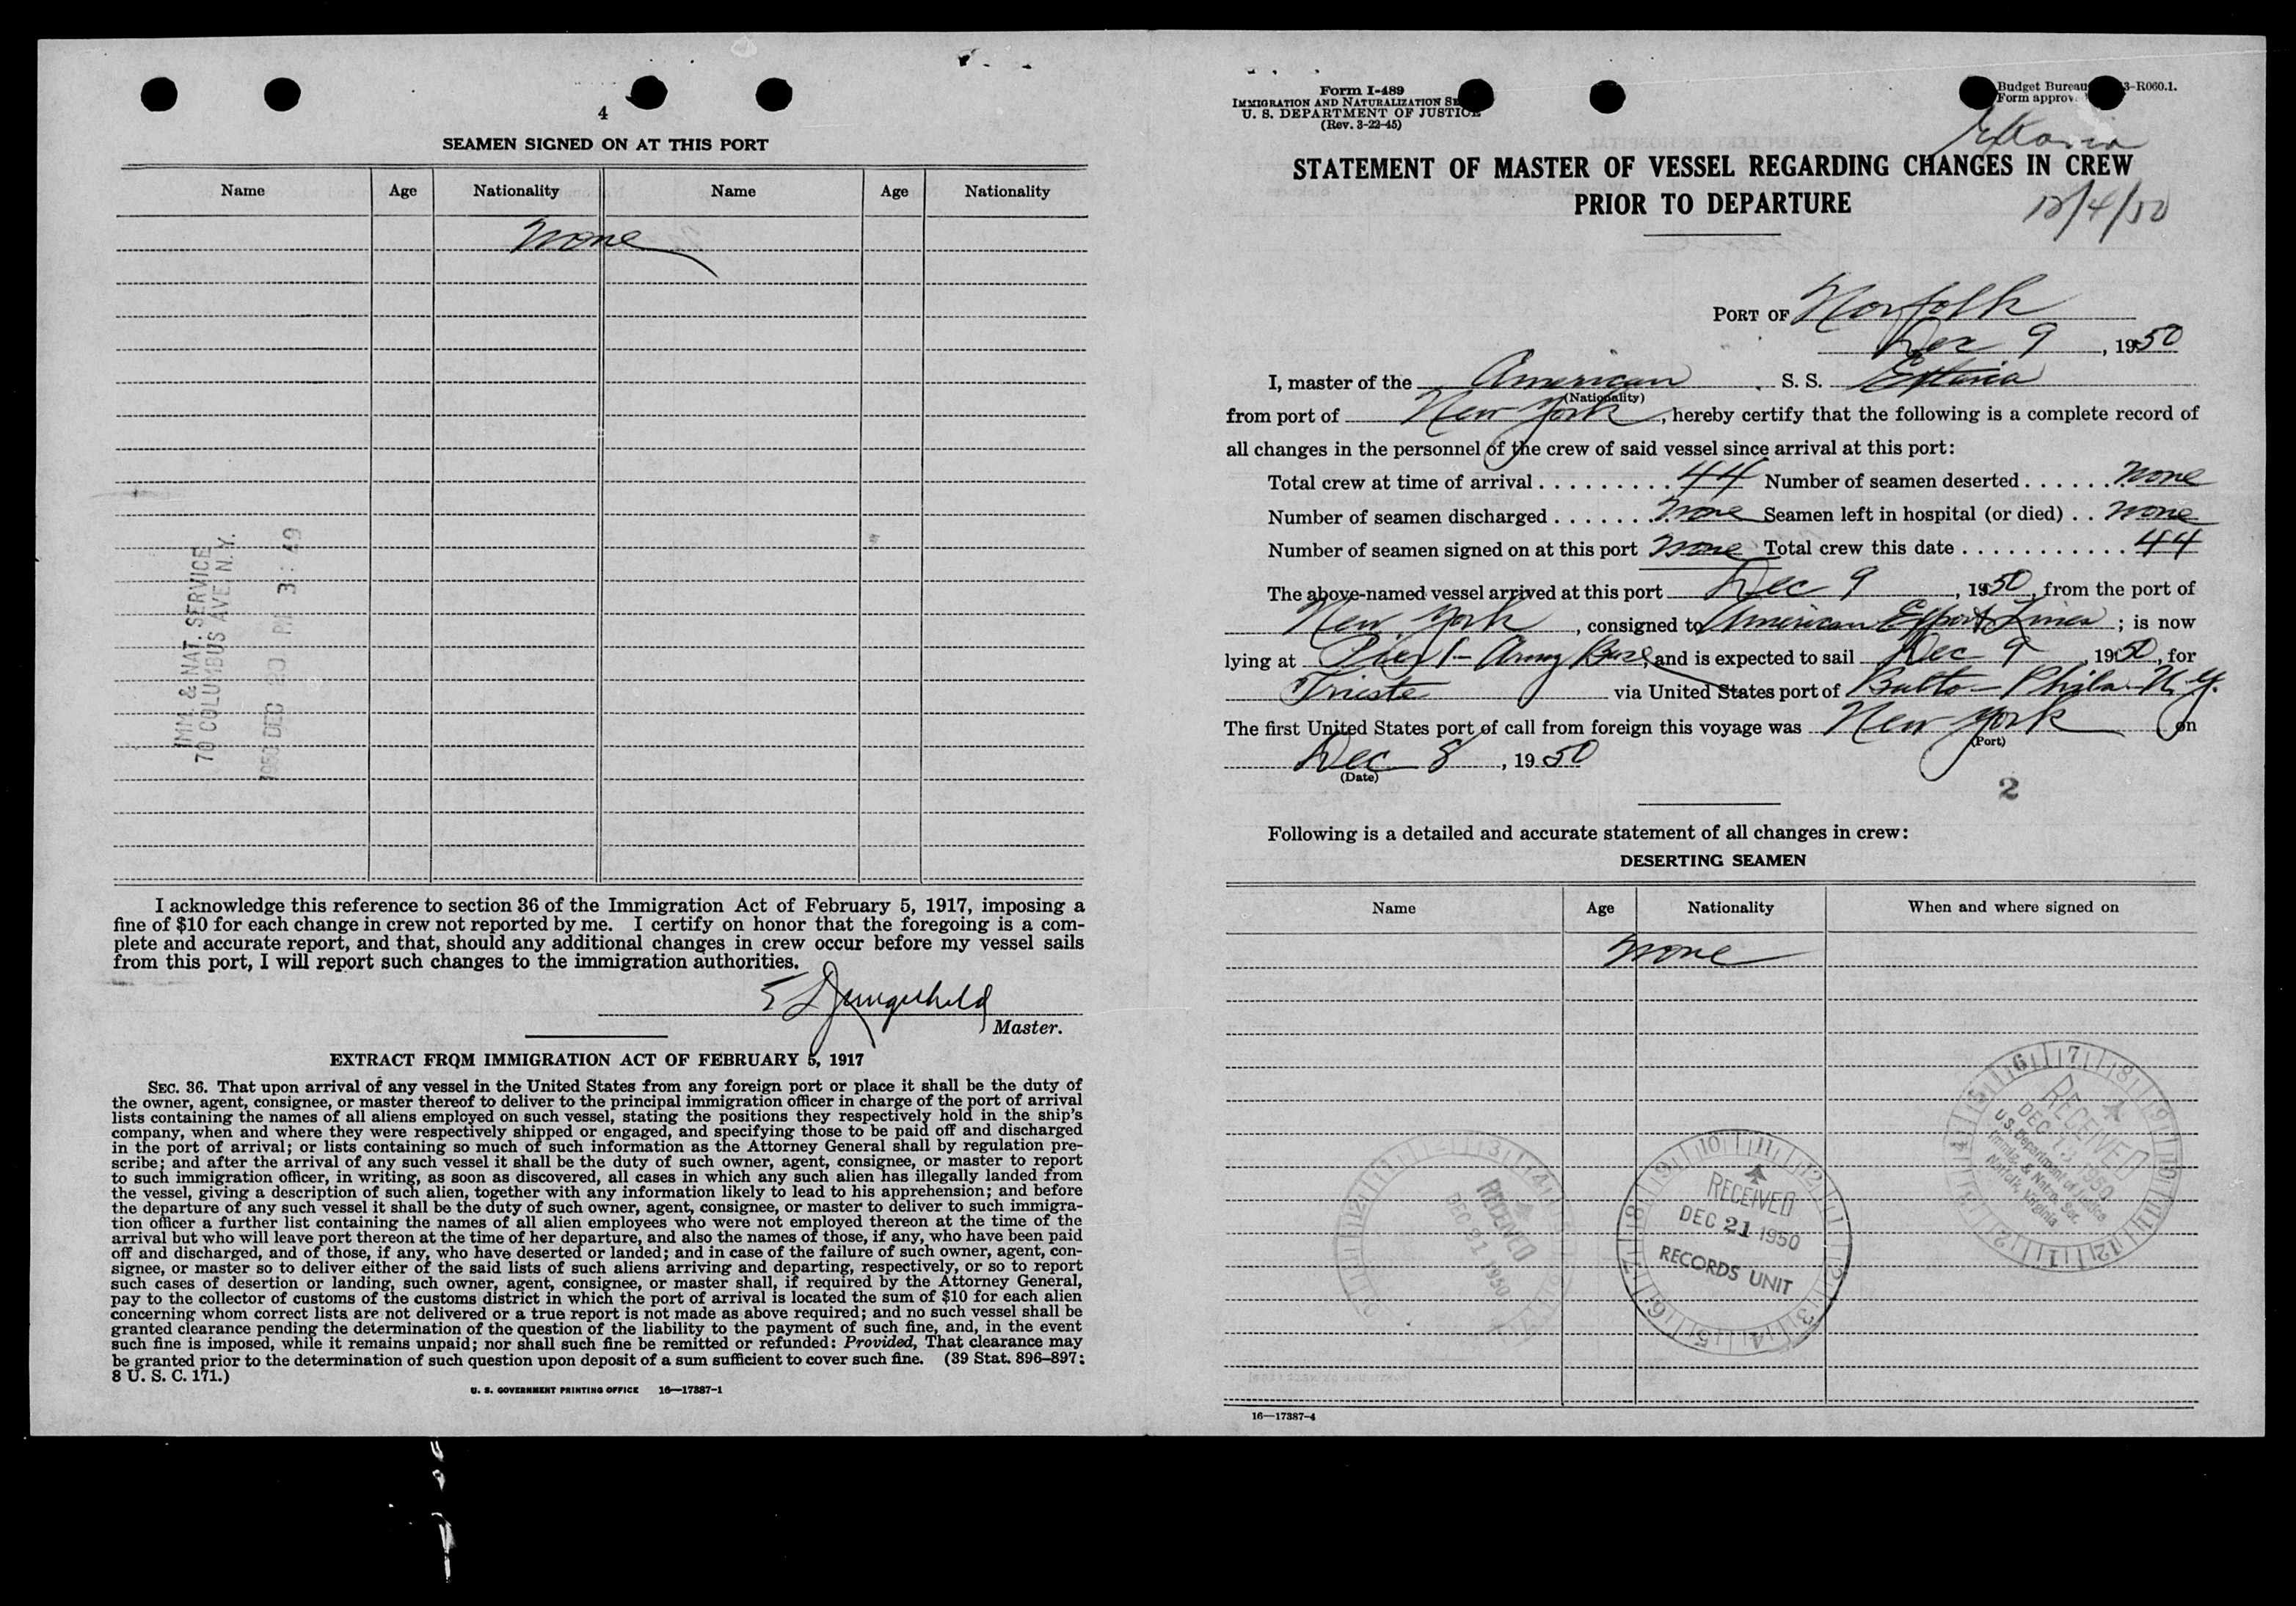 4
SEAMEN SIGNED ON AT THIS PORT
Name Age Nationality Name Age Nationality
None
IMM. & NAT. SERVICE
70 COLUMBUS AVE. N.Y.
1950 DEC 20 PM 3: 49
I acknowledge this reference to section 36 of the Immigration Act of February 5, 1917, imposing a
fine of $10 for each change in crew not reported by me. I certify on honor that the foregoing is a com-
plete and accurate report, and that, should any additional changes in crew occur before my vessel sails
from this port, I will report such changes to the immigration authorities.
Master.
EXTRACT FROM IMMIGRATION ACT OF FEBRUARY 5, 1917
SEC. 36. That upon arrival of any vessel in the United States from any foreign port or place it shall be the duty of
the owner, agent, consignee, or master thereof to deliver to the principal immigration officer in charge of the port of arrival
lists containing the names of all aliens employed on such vessel, stating the positions they respectively hold in the ship's
company, when and where they were respectively shipped or engaged, and specifying those to be paid off and discharged
in the port of arrival; or lists containing so much of such information as the Attorney General shall by regulation pre-
scribe; and after the arrival of any such vessel it shall be the duty of such owner, agent, consignee, or master to report
to such immigration officer, in writing, as soon as discovered, all cases in which any such alien has illegally landed from
the vessel, giving a description of such alien, together with any information likely to lead to his apprehension; and before
the departure of any such vessel it shall be the duty of such owner, agent, consignee, or master to deliver to such immigra-
tion officer a further list containing the names of all alien employees who were not employed thereon at the time of the
arrival but who will leave port thereon at the time of her departure, and also the names of those, if any, who have been paid
off and discharged, and of those, if any, who have deserted or landed; and in case of the failure of such owner, agent, con-
signee, or master so to deliver either of the said lists of such aliens arriving and departing, respectively, or so to report
such cases of desertion or landing, such owner, agent, consignee, or master shall, if required by the Attorney General,
pay to the collector of customs of the customs district in which the port of arrival is located the sum of $10 for each alien
concerning whom correct lists are not delivered or a true report is not made as above required; and no such vessel shall be
granted clearance pending the determination of the question of the liability to the payment of such fine, and, in the event
such fine is imposed, while it remains unpaid; nor shall such fine be remitted or refunded: Provided, That clearance may
be granted prior to the determination of such question upon deposit of a sum sufficient to cover such fine. (39 Stat. 896–897;
8 U. S. C. 171.)
U. S. GOVERNMENT PRINTING OFFICE 16—17387-1
Form I-489
IMMIGRATION AND NATURALIZATION SE
U. S. DEPARTMENT OF JUSTICE
(Rev. 3-22-45)
Budget Bureau 3-R060.1.
Form approv
Extavia
STATEMENT OF MASTER OF VESSEL REGARDING CHANGES IN CREW
PRIOR TO DEPARTURE
12/4/50
PORT OF Norfolk
Dec 9, 1950
I, master of the American S. S. Extavia
(Nationality)
from port of New York, hereby certify that the following is a complete record of
all changes in the personnel of the crew of said vessel since arrival at this port:
Total crew at time of arrival . . . . . . . . . 44 Number of seamen deserted . . . . . . None
Number of seamen discharged . . . . . . . None Seamen left in hospital (or died) . . None
Number of seamen signed on at this port None Total crew this date . . . . . . . . . . . 44
The above-named vessel arrived at this port Dec 9, 1950, from the port of
New York, consigned to American Export Lines; is now
lying at Pier 1 – Army Base, and is expected to sail Dec 9, 1950, for
Trieste via United States port of Balto – Phila – N.Y.
The first United States port of call from foreign this voyage was New York on
(Port)
Dec 8, 1950
(Date)
2
Following is a detailed and accurate statement of all changes in crew:
DESERTING SEAMEN
Name Age Nationality When and where signed on
None
RECEIVED
DEC 13 1950
U.S. Department of Justice
Immig. & Natrn. Ser.
Norfolk, Virginia
RECEIVED
DEC 21 1950
RECORDS UNIT
RECEIVED
DEC 21 1950
16—17387-4